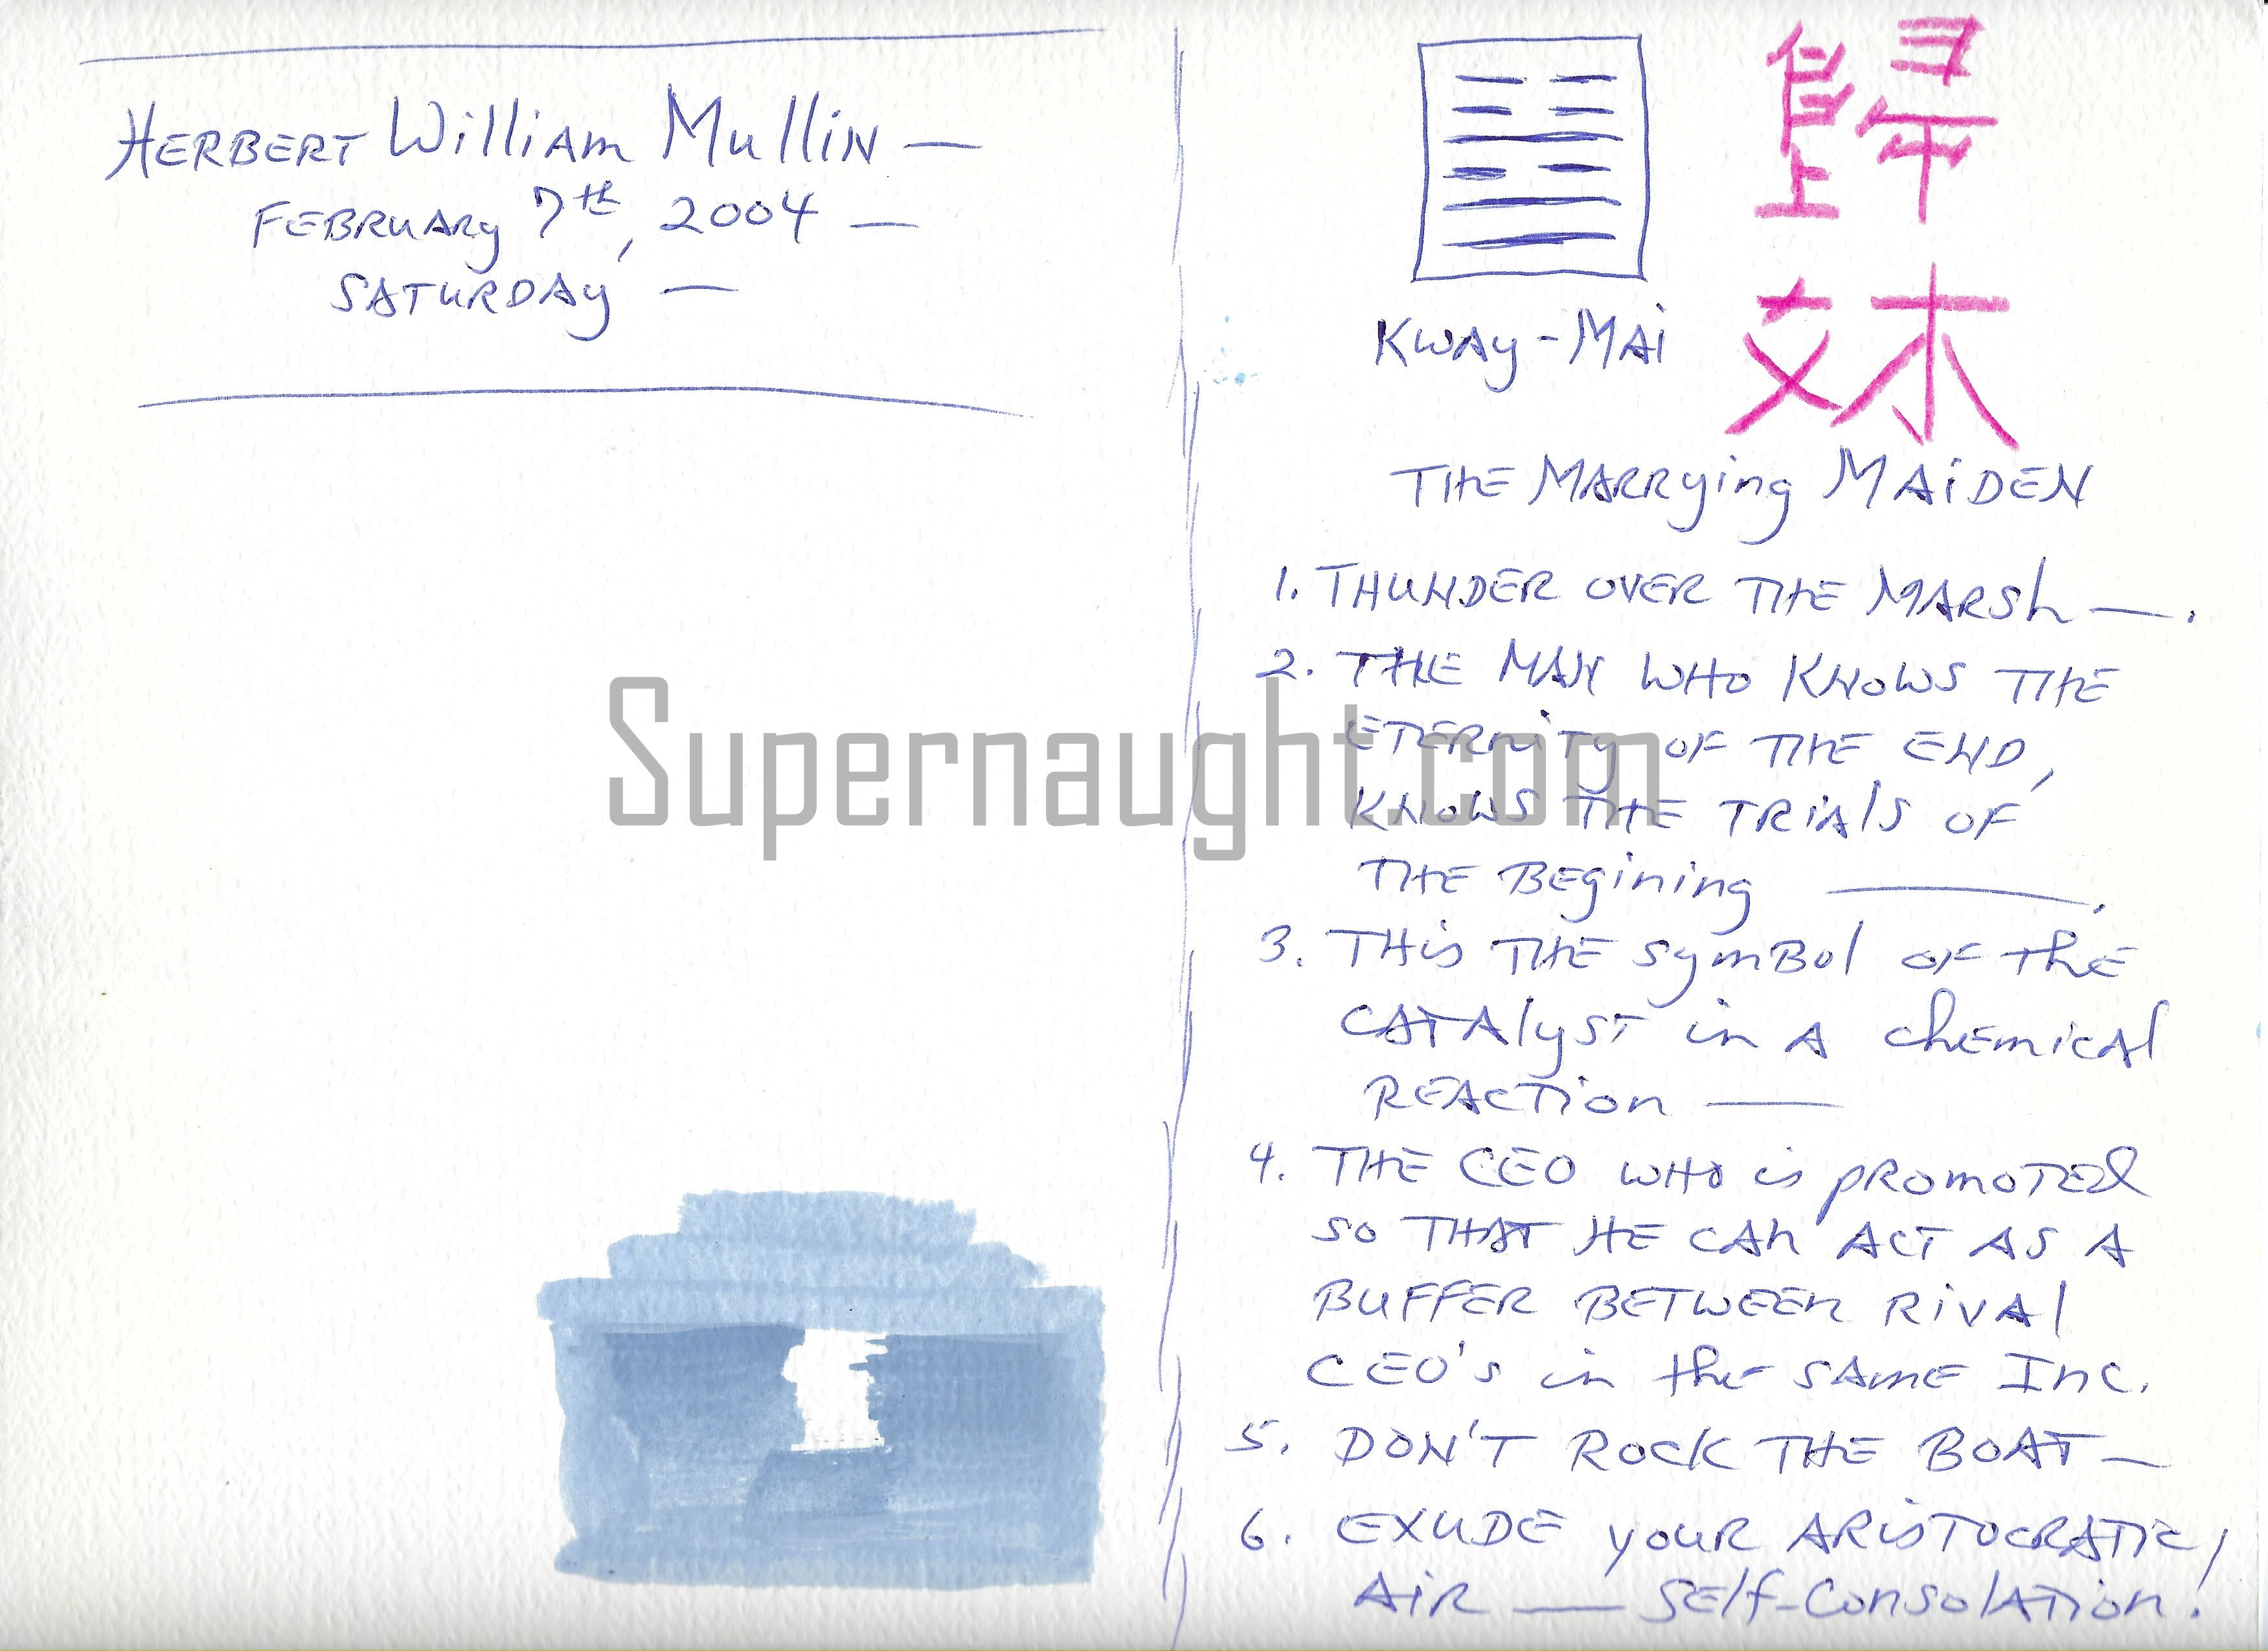 HERBERT William MulliN —
FEBRUARY 7th, 2004 —
SATURDAY —
歸
妹
KWAY-MAi
THE MARRying MAiDEN
1. THUNDER OVER THE MARSh —.
2. THE MAN WHO KNOWS THE
ETERNiTy OF THE END,
KNOWS THE TRiAlS OF
THE BEGiNiNg —.
3. THis THE SymBol OF thE
CATAlyST in A ChEmiCAl
REACTion —
4. THE CEO WHO is pROMOTEd
SO THAT HE CAN ACT AS A
BUFFER BETWEEN RiVAl
CEO's in the SAME Inc.
5. DON'T ROCK THE BOAT—
6. EXUDE yOUR ARiSTOCRATiC,
AiR — SElf-ConSolATion!
Supernaught.com